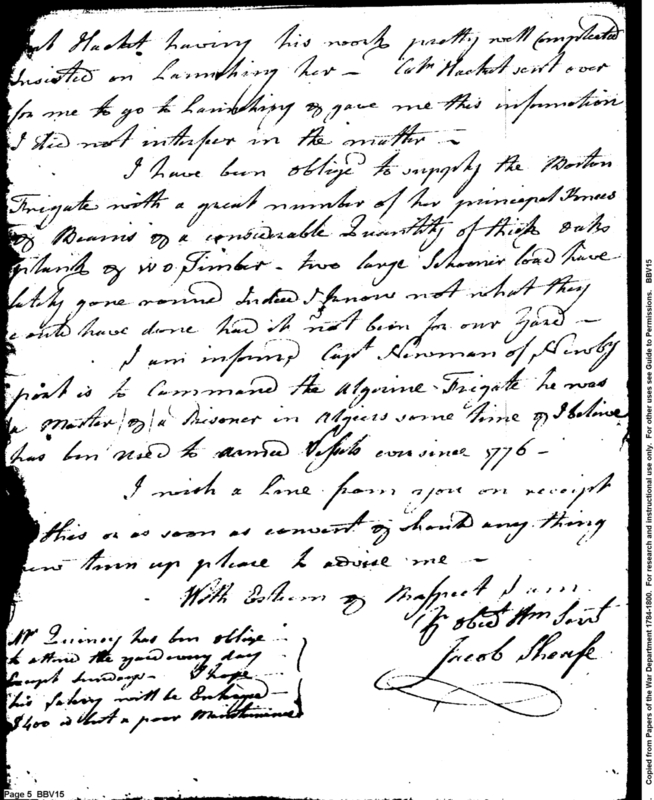 Hacket having his work pretty well Compleated
Insisted on Launching her – Cap Hacket sent over
for me to go to Launching & gave me this information
I did not interfer in the matter –
I have been oblige to supply the Boston
Frigate with a great number of her principal Knees
& Beams & a considerable Quantity of thick oak
plank & W O Timber – two large Schooner load have
lately gone round Indeed I know not what they
could have done had it not been for our Yard –
I am inform'd Capt Newman of Newby
port is to Command the Algerine Frigate he was
a Master / & / a Prisoner in Algiers some time & I believe
has ben used to armed Vessels ever since 1776 –
I wish a line from you on receipt
this or as soon as convent & should any thing
new turn up please to advise me –
With Esteem & Respect I am
Yr obedt Hm Servt
Jacob Sheafe
Mr Quincy has ben oblige
to attend the yard every day
Except sundays – I hope
his Salery will be Enlarged
$400 is but a poor Maintainence
Page 5 BBV15
Copied from Papers of the War Department 1784-1800. For research and instructional use only. For other uses see Guide to Permissions. BBV15